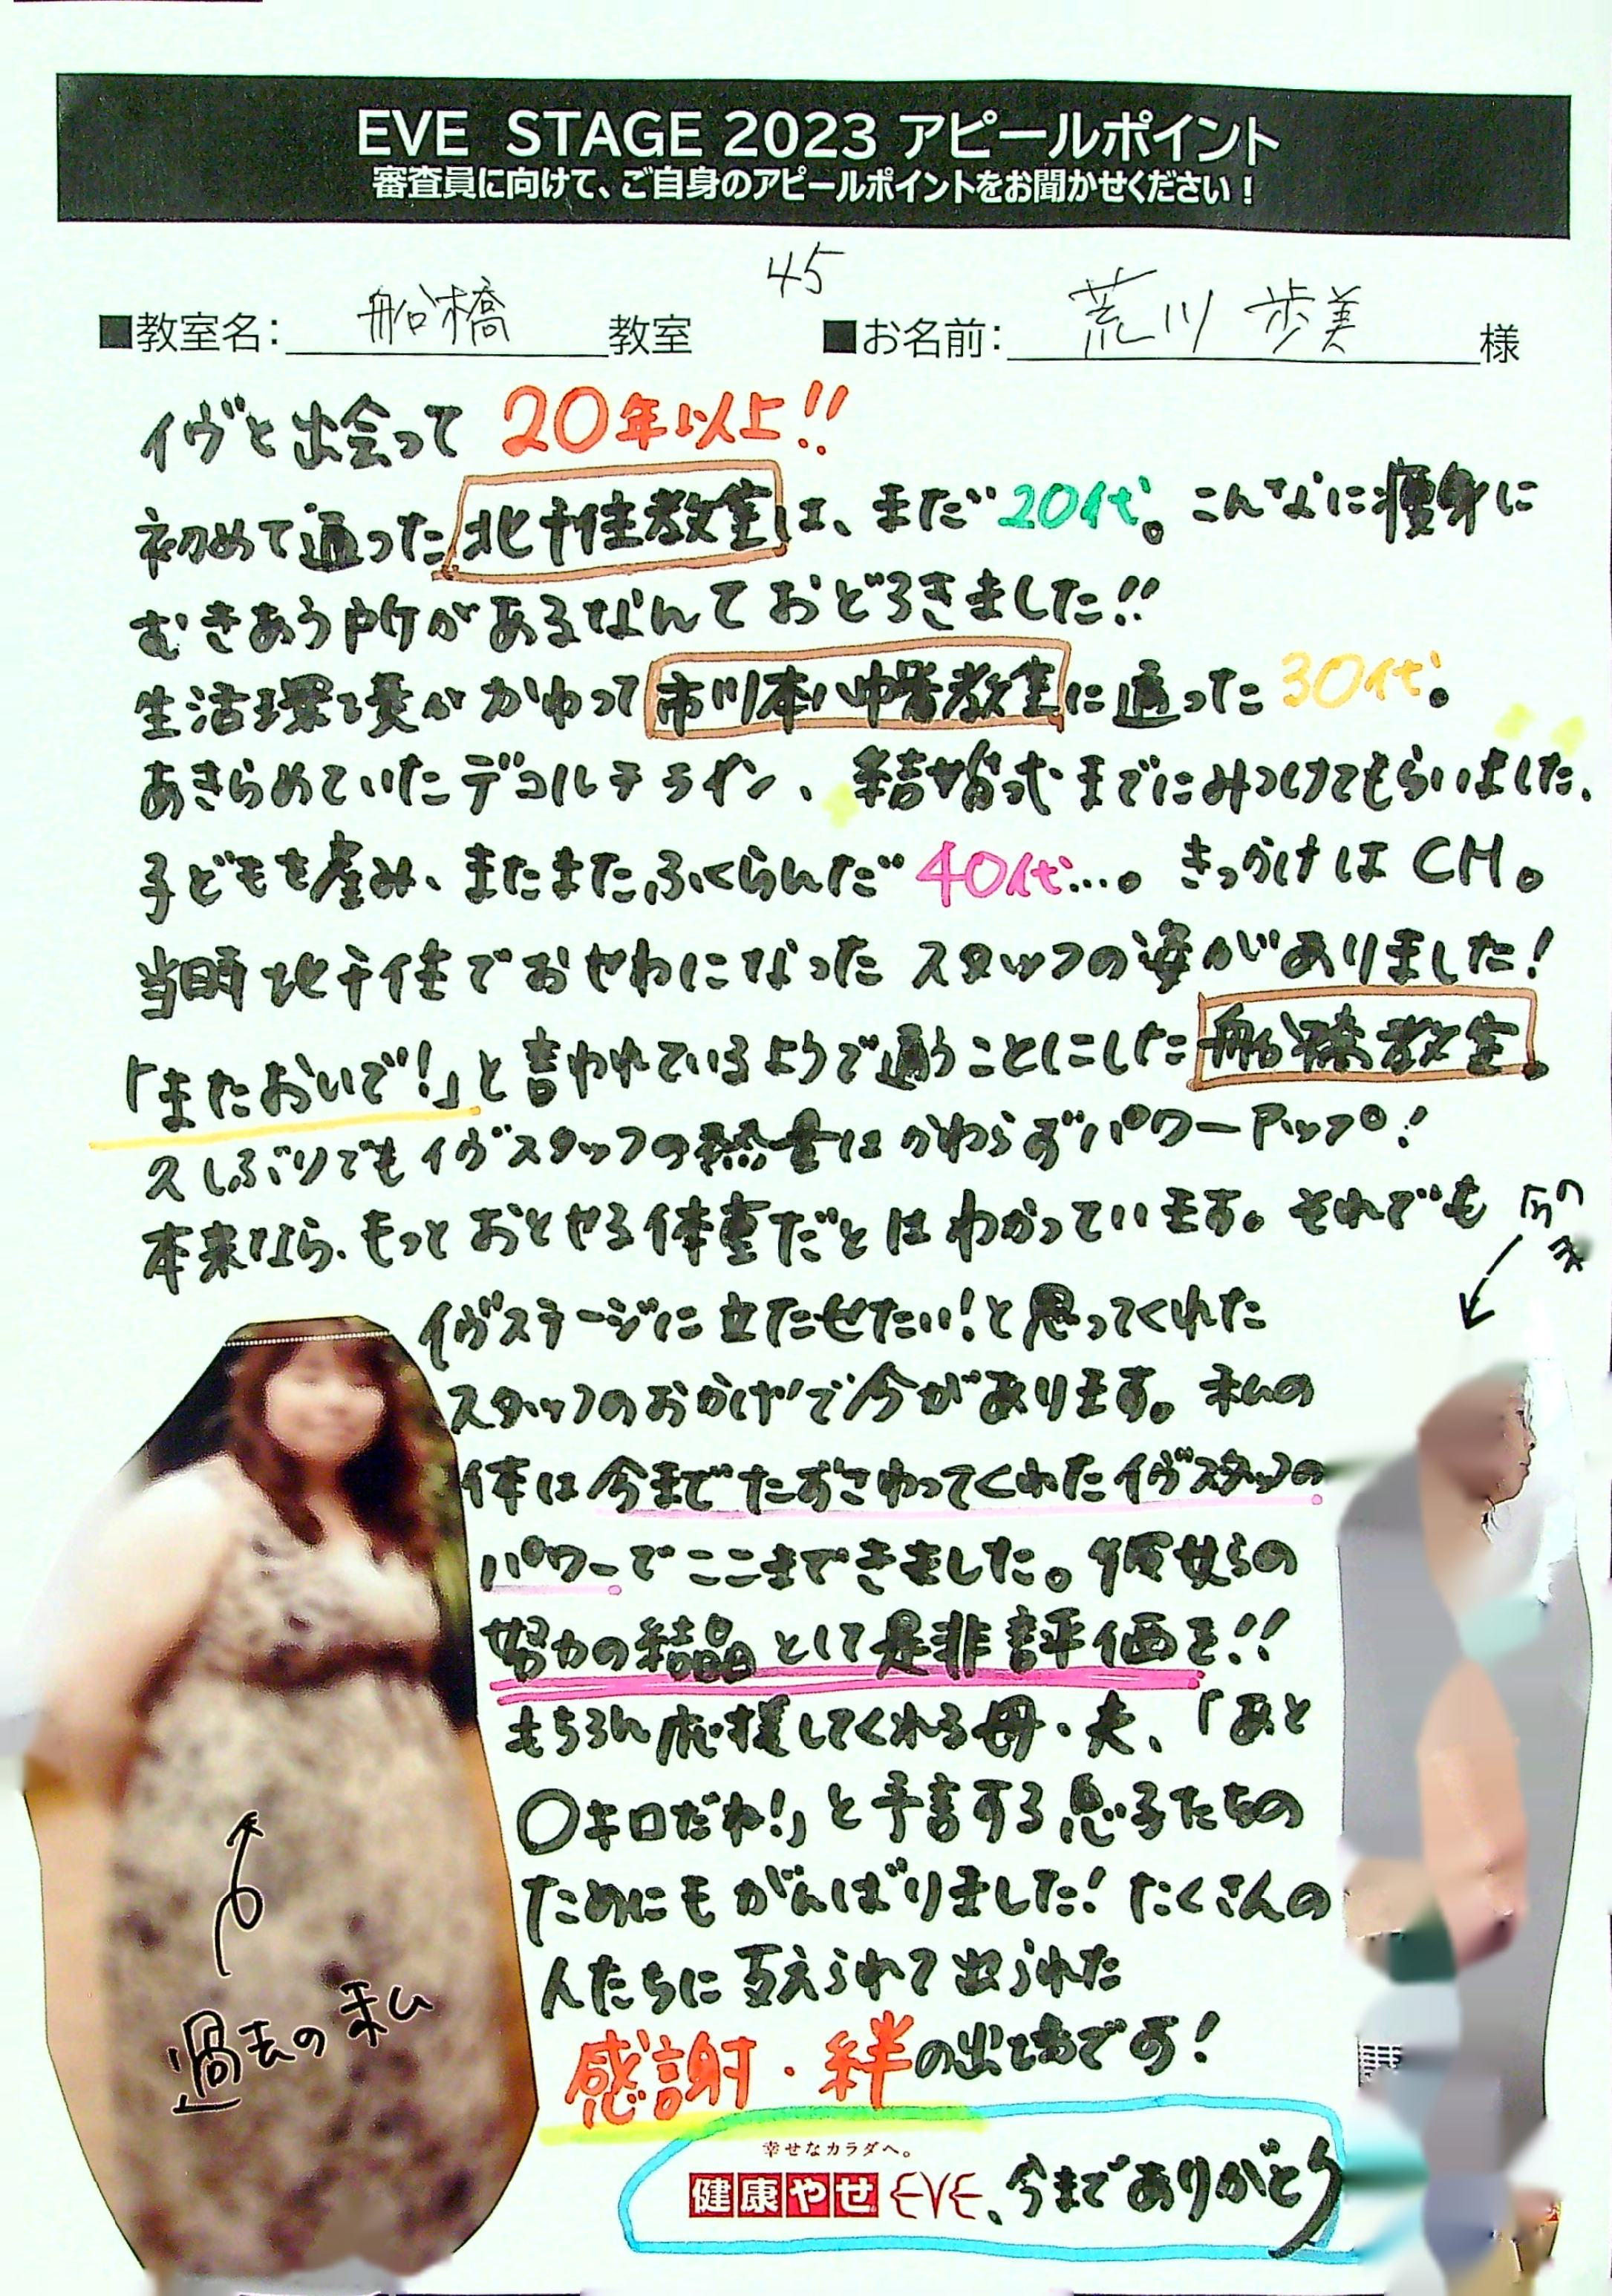 EVE STAGE 2023 アピールポイント
審査員に向けて、ご自身のアピールポイントをお聞かせください！
45
■教室名：船橋教室 ■お名前：荒川 歩美様
イヴと出会って 20年以上!!
初めて通った北千住教室は、まだ20代。こんなに痩身に
むきあう所があるなんておどろきました!!
生活環境がかわって市川本八幡教室に通った30代。
あきらめていたデコルテライン、結婚式までにみつけてもらいました。
子どもを産み、またまたふくらんだ40代…。きっかけはCM。
当時北千住でおせわになったスタッフの姿がありました！
「またおいで！」と言われているようで通うことにした船橋教室。
久しぶりでもイヴスタッフの熱量はかわらずパワーアップ！
本来なら、もっとおとせる体重だとはわかっています。それでも
イヴステージに立たせたい！と思ってくれた
スタッフのおかげで今があります。私の
体は今までたずさわってくれたイヴスタッフの
パワーでここまできました。彼女らの
努力の結晶として是非評価を!!
もちろん応援してくれる母・夫、「あと
〇キロだね！」と予言する息子たちの
ためにもがんばりました！たくさんの
人たちに支えられて出られた
感謝・絆の出場です！
幸せなカラダへ。
健康やせ EVE、今までありがとう
過去の私
今の